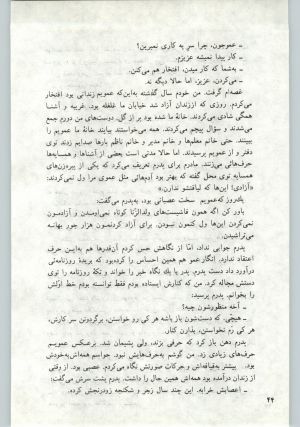 ـ عموجون، چرا سر یه کاری نمیرین؟
ـ کار پیدا نمیشه عزیزم.
ـ بهشما که کار میدن، افتخار هم می‌کنن.
ـ می‌کردن، عزیز، اما حالا دیگه نه.
غصه‌ام گرفت. من خودم سال گذشته به‌این‌که عمویم زندانی بود افتخار
می‌کردم. روزی که اززندان آزاد شد خیابان ما غلغله بود. غریبه و آشنا
همگی شادی می‌کردند. خانهٔ ما شده بود پر از گل. دوست‌های من دورم جمع
می‌شدند و سؤال پیچم می‌کردند. همه می‌خواستند بیایند خانهٔ ما عمویم را
ببینند. حتی خانم معلم‌ها و خانم مدیر و خانم ناظم بارها صدایم زدند توی
دفتر و از عمویم پرسیدند. اما حالا مدتی است بعضی از آشناها و همسایه‌ها
حرف‌هائی می‌زنند. مادرم برای پدرم تعریف می‌کرد که یکی از پیرزن‌های
همسایه توی محل گفته که بهتر بود آدم‌هائی مثل عموی مرا ول نمی‌کردند:
«آزادی! این‌ها که لیاقتشو ندارن.»
یك‌روز که‌عمویم سخت عصبانی بود، به‌پدرم می‌گفت:
باور کن اگه همون فاشیست‌های ولدالزنا کوتاه نمی‌اومدن و آزادمون
نمی‌کردن این‌ها ول کنمون نبودن. برای آزاد کردنمون هزار جور بهانه
می‌تراشیدن.
پدرم جوابی نداد، اما از نگاهش حس کردم آن‌قدرها هم به‌این حرف
اعتقاد ندارد. انگارعمو هم همین احساس را کرده‌بود که بریدهٔ روزنامه‌ئی
درآورد داد دست پدرم. پدر با یك نگاه خبر را خواند و تکهٔ روزنامه را توی
دستش مچاله کرد. من که کنارش ایستاده بودم فقط توانسته بودم خط اولش
را بخوانم. پدرم پرسید:
ـ آخه منظورشون چیه؟
ـ هیچی. که دست‌شون باز باشه هر کی رو خواستن، برگردونن سر کارش،
هر کی رم نخواستن، بذارن کنار.
پدرم دهن باز کرد که حرفی بزند، ولی پشیمان شد. برعکس عمویم
حرف‌های زیادی زد. من گوشم به‌حرف‌هایش نبود. حواسم همه‌اش به‌خودش
بود. بیشتر به‌قیافه‌اش و حرکات صورتش نگاه می‌کردم. عصبی بود. از وقتی
از زندان درآمده بود همه‌اش همین حال را داشت. پدرم پشت سرش می‌گفت:
ـ اعصابش خرابه. این چند سال زجر و شکنجه زودرنجش کرده.
۴۴